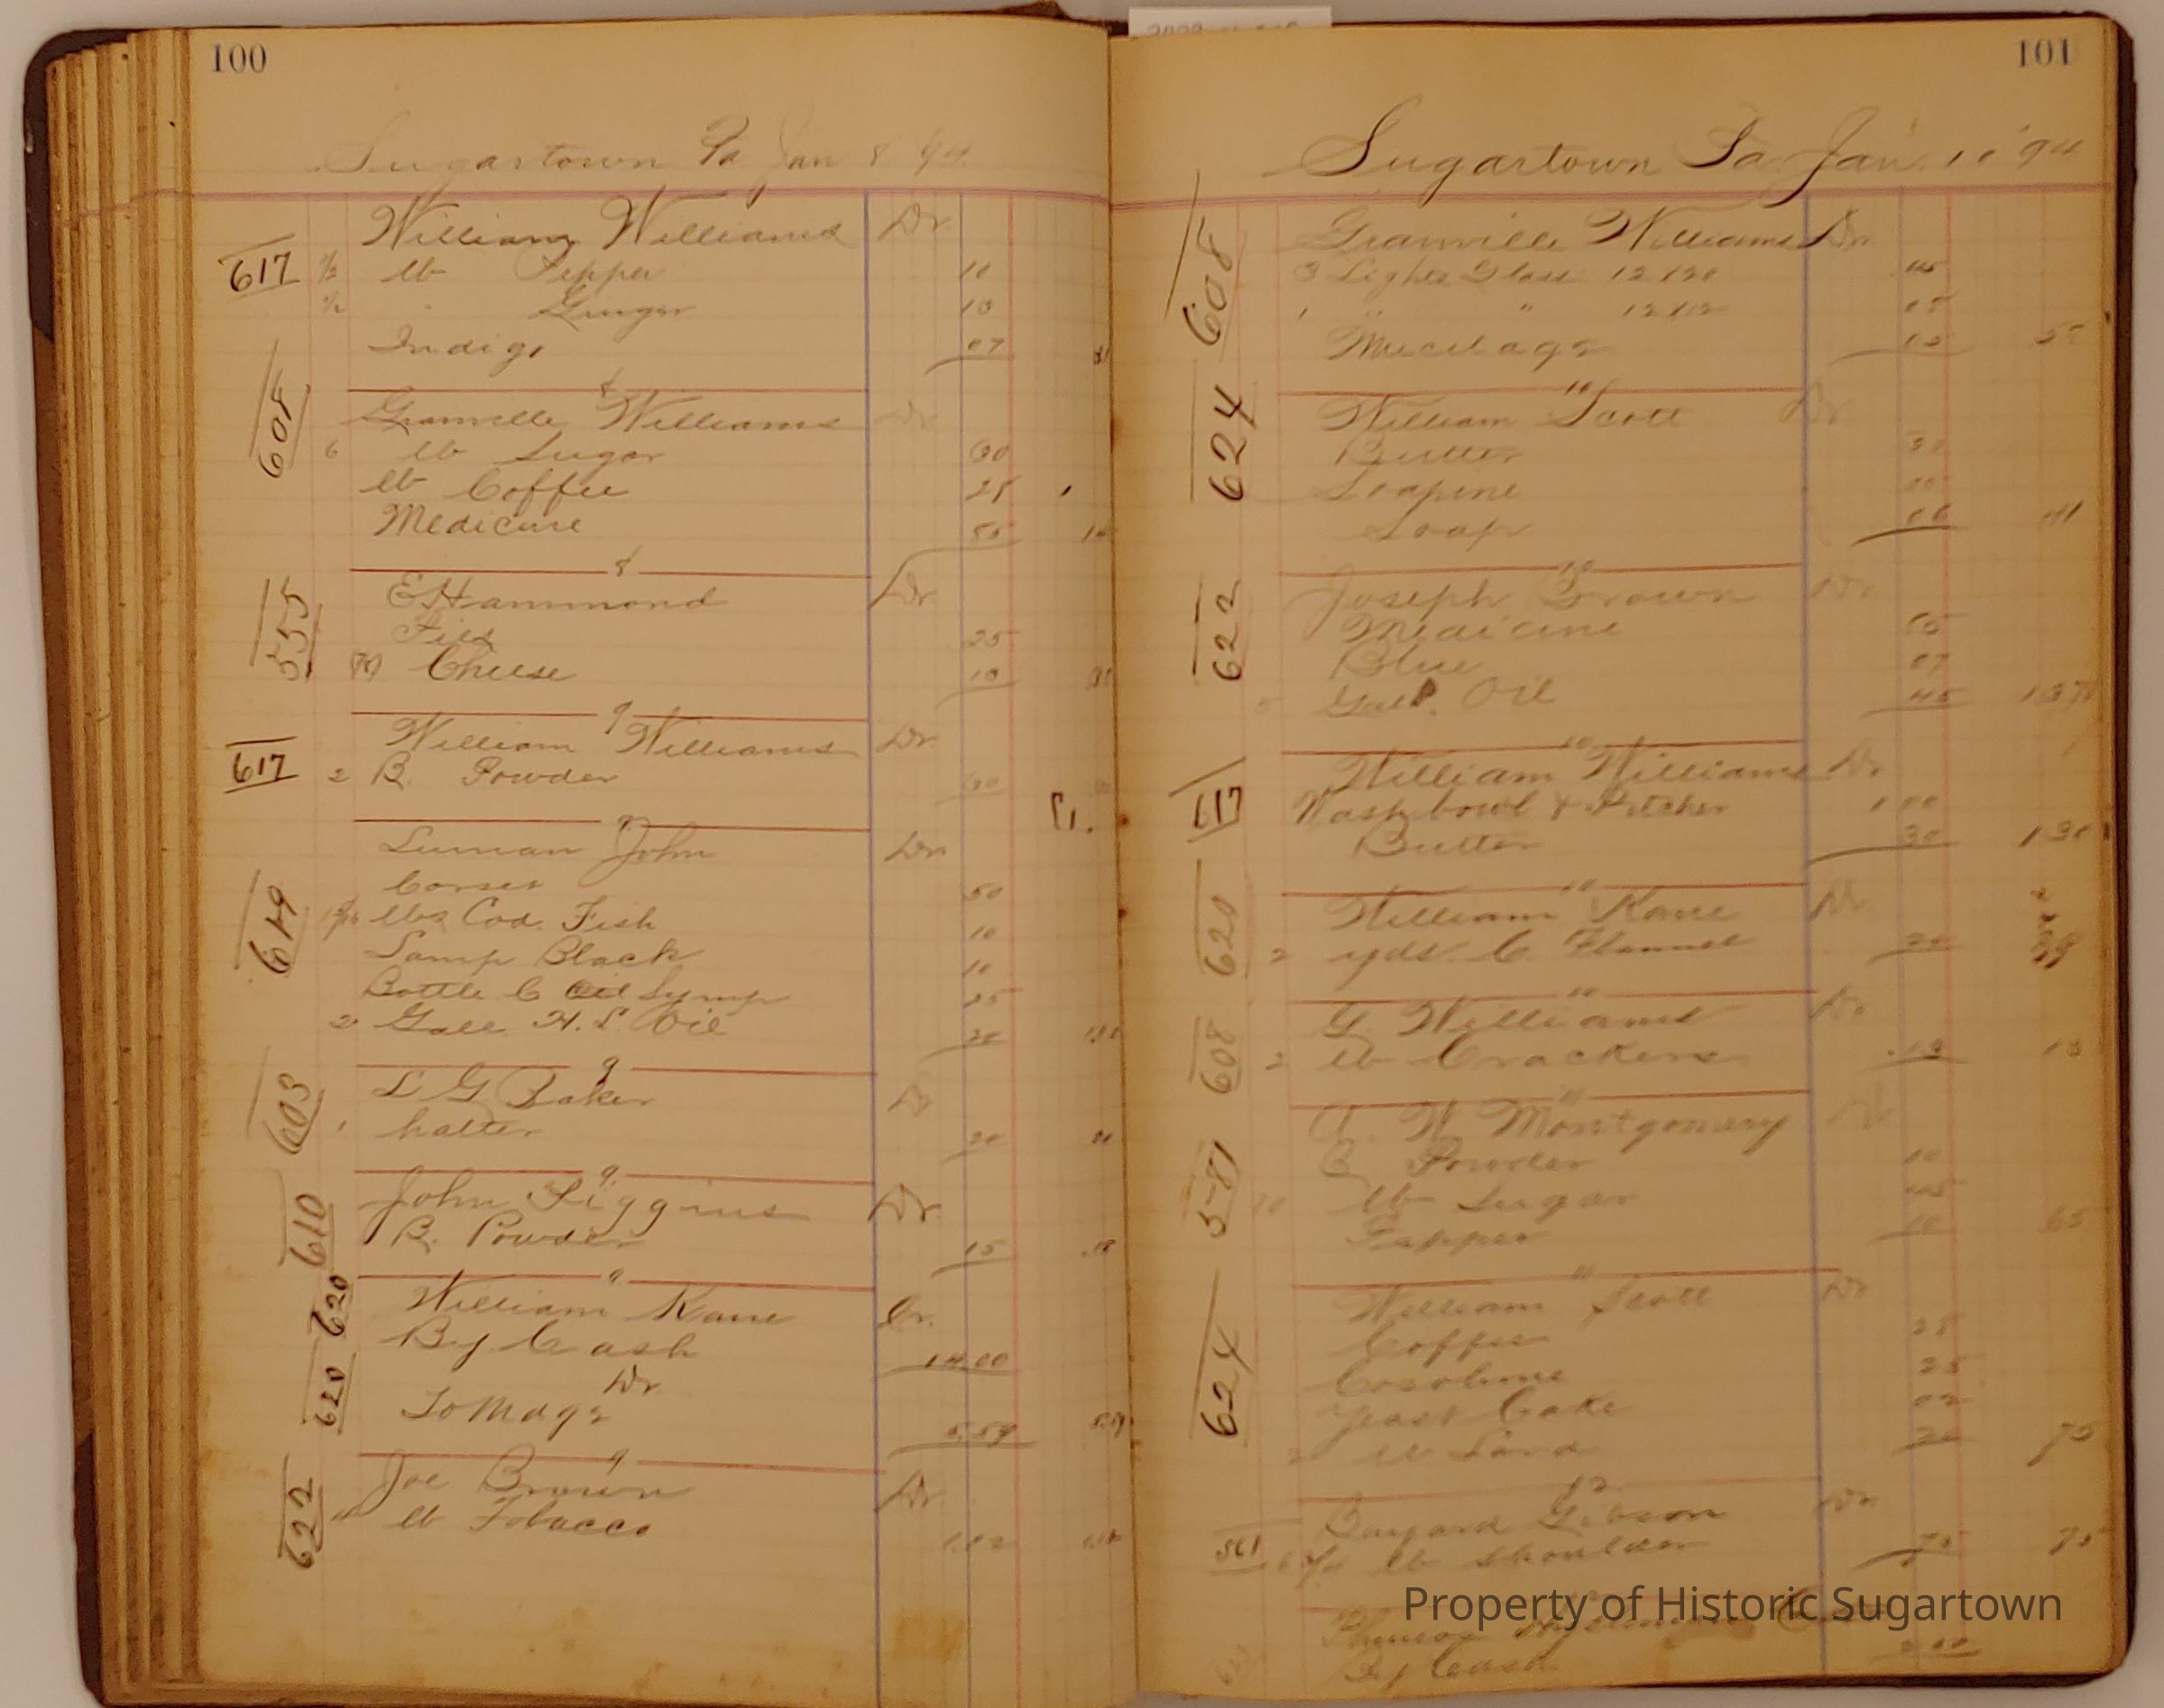 100
Sugartown Pa Jan 8 94
William Williams Dr
617 1/2 lb Pepper 10
1/2 " Ginger 10
Indigo 07
8
608 Granville Williams Dr
6 lb Sugar 30
lb Coffee 28
Medicine 50
8
555 E Hammond Dr
Pies 25
Cheese 10
9
617 William Williams Dr
2 B. Powder
9
619 Luman John Dr
Corset 50
lbs Cod. Fish 10
Lamp Black 10
Bottle C Oil Syrup 25
2 Gall H. L. Oil
9
603 L G Baker Dr
1 halter 20 20
9
610 John Figgins Dr
B. Powder 15
9
620 William Kane Cr.
By Cash 14.00
620 Dr
To Mdqs 5.59 5.59
9
622 Joe Brown Dr
lb Tobacco
101
Sugartown Pa Jan. 10 '94
608 Granville Williams Dr
3 Lights Glass 12 x 20 45
1 " " 12 x 12 05
Mucilage
10
624 William Scott Dr
Butter
Soapine
Soap 06
10
622 Joseph Brown Dr
Medicine
Blue 07
5 Gall. Oil 45
10
617 William Williams Dr
Wash bowl & Pitcher 1 00
Butter 30 1 30
10
620 William Kane Dr
2 yds. C. Flannel 20
11
608 G. Williams Dr
2 lb Crackers .18 18
11
581 A. W Montgomery Dr
B Powder 10
10 lb Sugar 45
Pepper 10 65
11
624 William Scott Dr
Coffee 28
Cosolene 25
Yeast Cake 02
2 lb Lard 20 75
12
561 Bayard Gibson Dr
lb Shoulder 75 75
By Cash
Property of Historic Sugartown